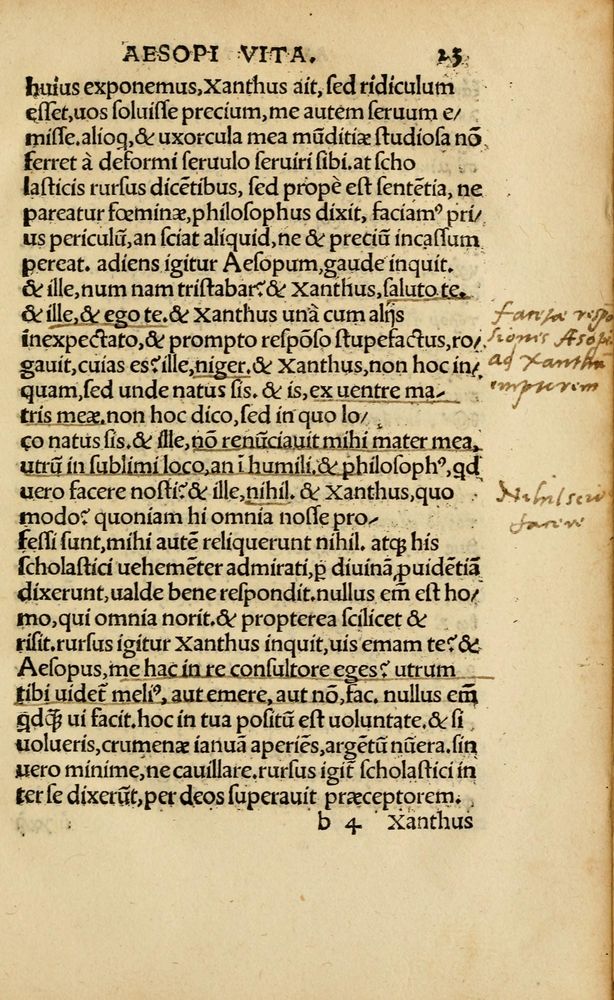 AESOPI VITA. 25
huius exponemus,Xanthus ait, sed ridiculum
esset,uos soluisse precium,me autem seruum e/
misse.alioq,& uxorcula mea mũditiæ studiosa nõ
ferret à deformi seruulo seruiri sibi.at scho
lasticis rursus dicẽtibus, sed propè est sentẽtia, ne
pareatur fœminæ,philosophus dixit, faciamꝰ pri/
us periculũ,an sciat aliquid,ne & preciũ incassum
pereat. adiens igitur Aesopum,gaude inquit.
& ille,num nam tristabar? & Xanthus,saluto te.
& ille,& ego te.& Xanthus unà cum alijs
inexpectato,& prompto respõso stupefactus,ro/
gauit,cuias es? ille,niger.& Xanthus,non hoc in/
quam,sed unde natus sis. & is,ex uentre ma/
tris meæ.non hoc dico,sed in quo lo/
co natus sis.& ille,nõ renũciauit mihi mater mea,
utrũ in sublimi loco,an ĩ humili.& philosophꝰ,qd
uero facere nosti? & ille,nihil. & Xanthus,quo
modo? quoniam hi omnia nosse pro/
fessi sunt,mihi autẽ reliquerunt nihil. atqꝫ his
scholastici uehemẽter admirati,ꝑ diuinã,ꝓuidẽtiã
dixerunt,ualde bene respondit.nullus em̃ est ho/
mo,qui omnia norit.& propterea scilicet &
risit.rursus igitur Xanthus inquit,uis emam te? &
Aesopus,me hac in re consultore eges? utrum
tibi uidet̃ meliꝰ, aut emere, aut nõ,fac. nullus em̃
qdqꝫ ui facit.hoc in tua positũ est uoluntate.& si
uolueris,crumenæ ianuã aperiẽs,argẽtũ nũera.sin
uero minime,ne cauillare.rursus igit̃ scholastici in
ter se dixerũt,per deos superauit præceptorem.
b 4 Xanthus
respo
sionis Aesopi
ad Xanthũ
Nihil scire
facere